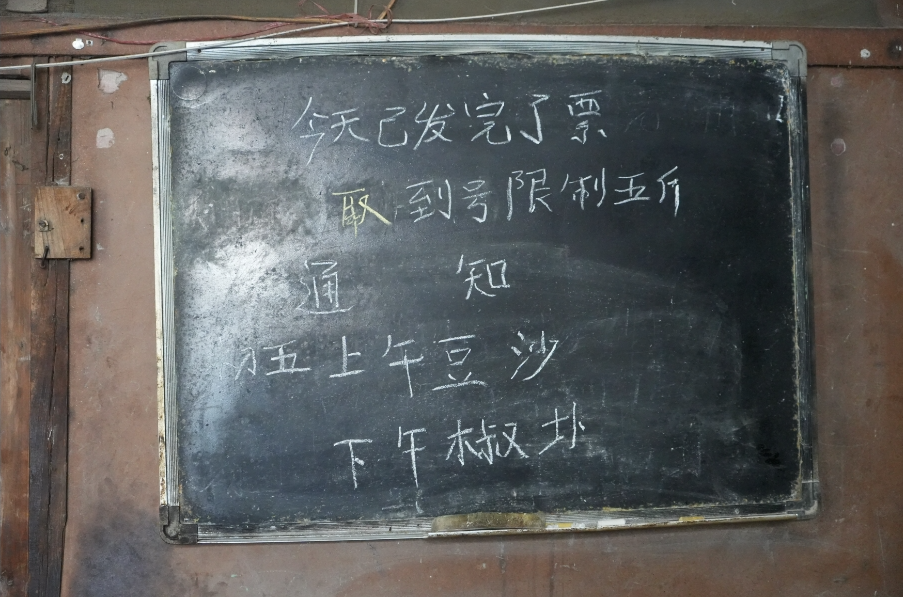 今天已发完了票
取到号限制五斤
通知
五上午豆沙
下午椒圤